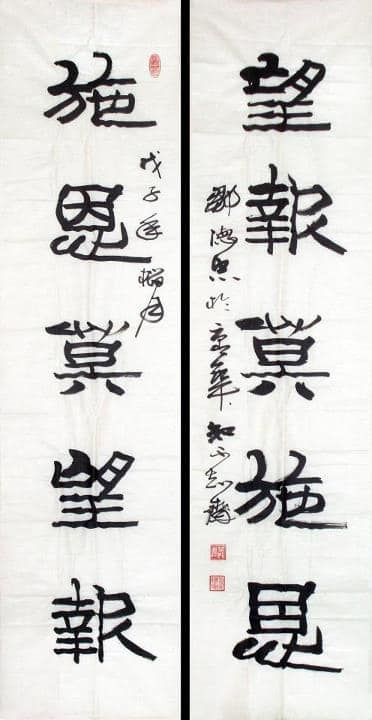 望報莫施恩
鄒德忠於京華知不齋
戊子年榴月
施恩莫望報